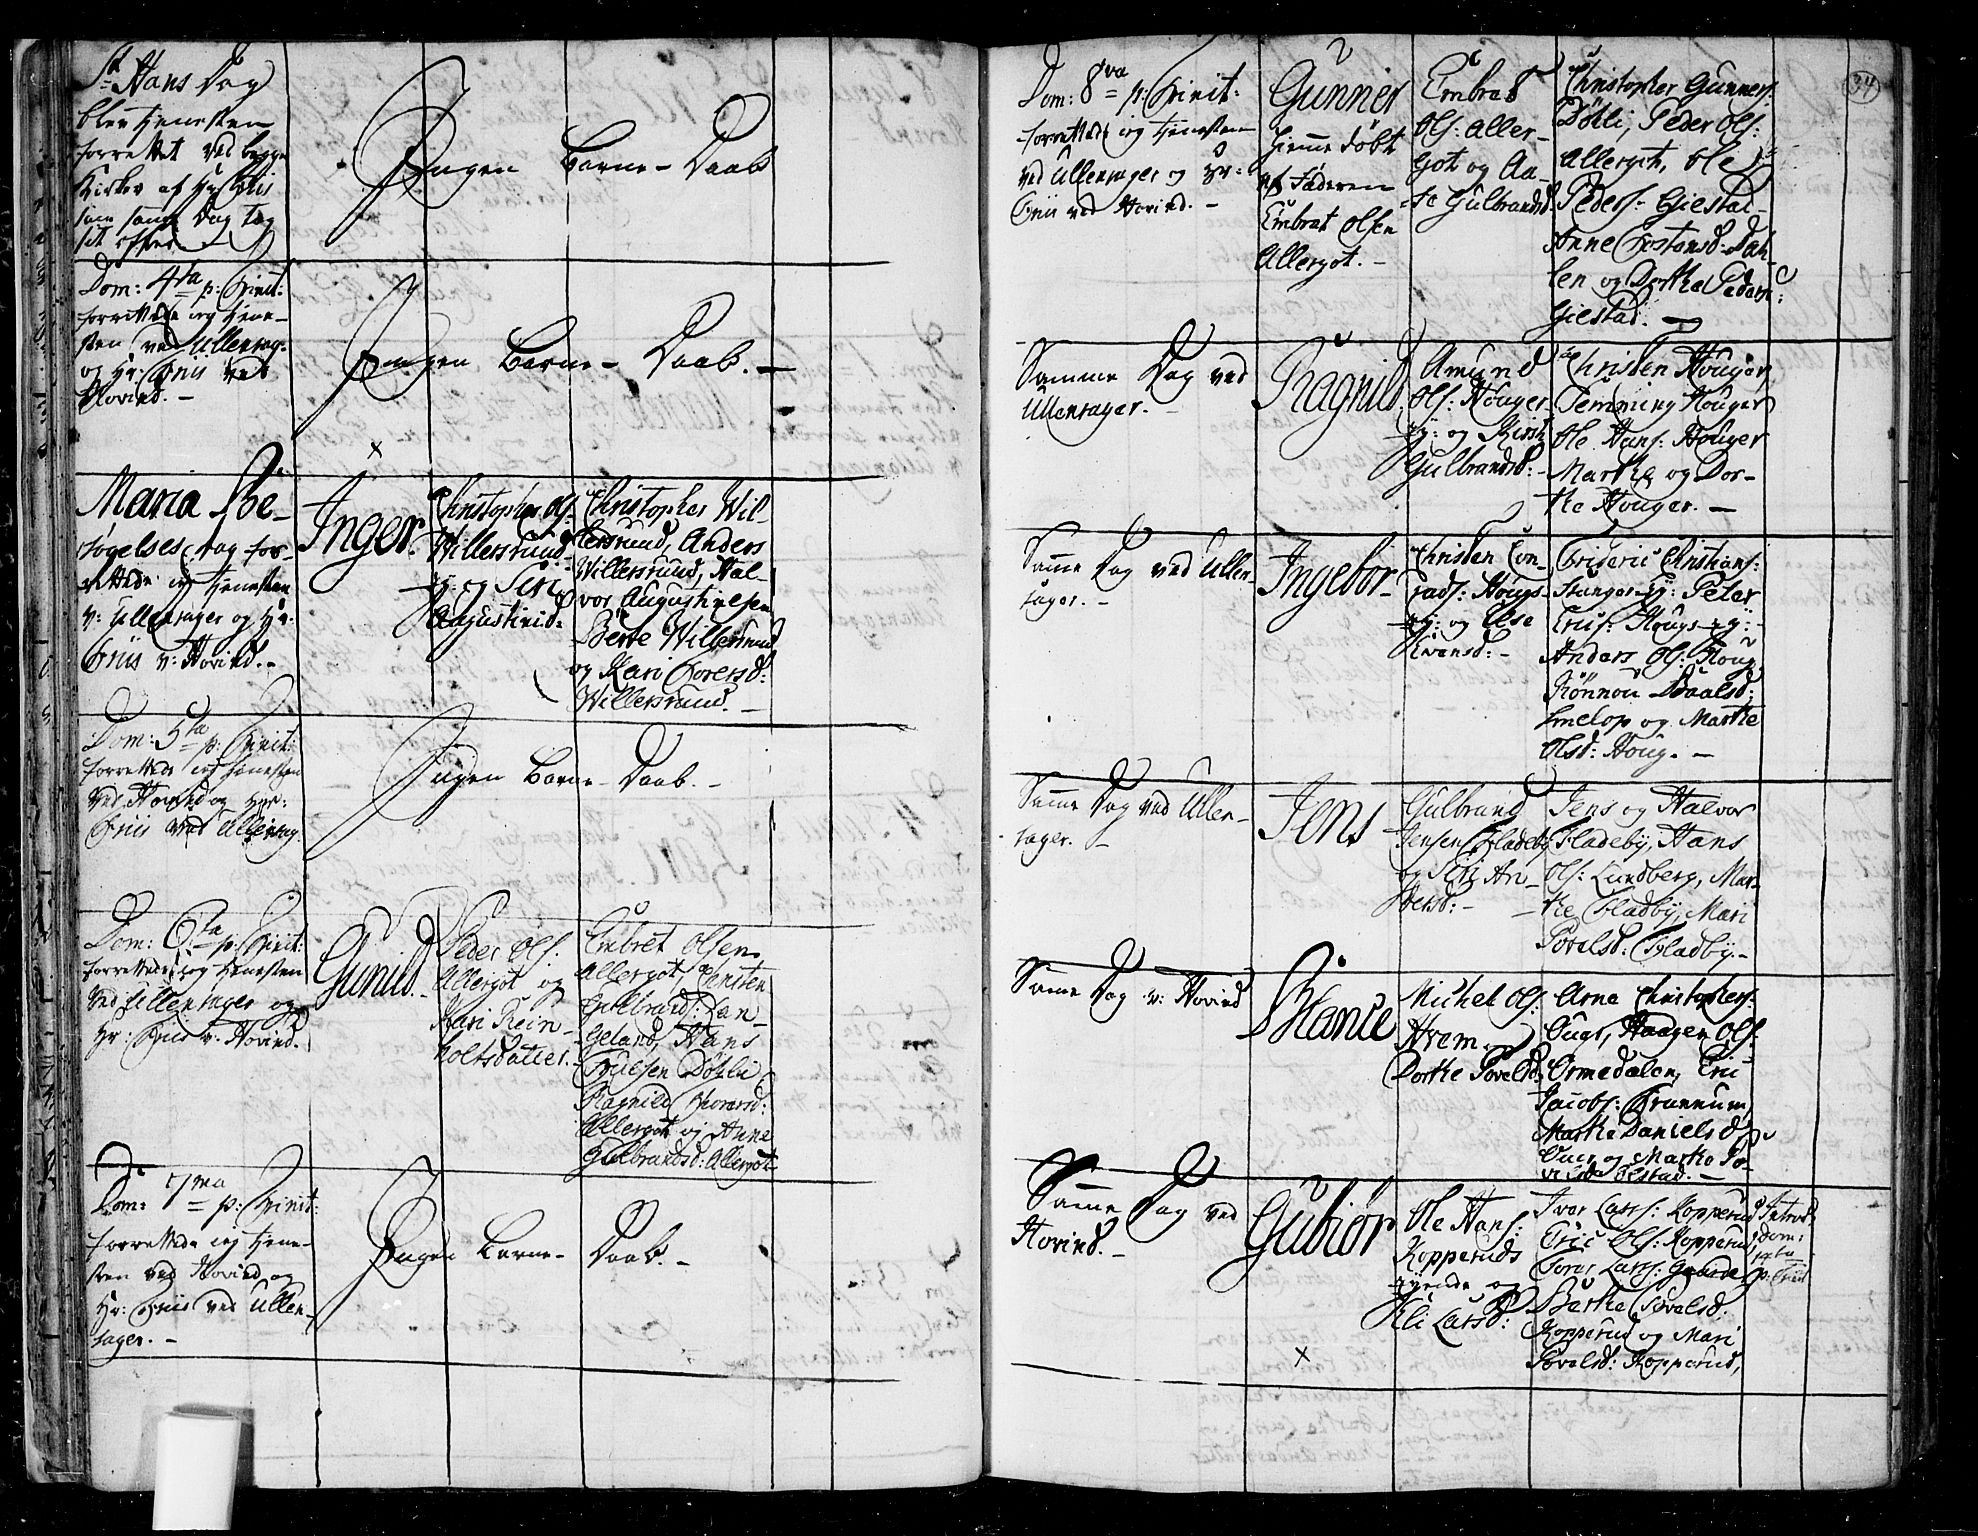 St: Hans Dag
blev tienesten
forrettet ved begge
Kirker af Hr: Friis
som samme Dag tog
sit offer
Ingen Barne-Daab
Dom: 4ta p: Trinit:
forrettede ieg tiene-
sten ved Ullensag:
og Hr: Friis ved
Hovind. -
Ingen Barne-Daab. -
Maria Be-
søgelses dag for-
rettede ieg tienesten
v: Ullensager og Hr:
Friis v: Hovind. -
Inger.
Christopher Ols:
Willersrund
ey: og Siri
Augustinid:
Christopher Wil-
lersrund, Anders
Willersrund, Hal-
vor Augustinesen
Berte Willersrund
og Kari Torersd:
Willersrund. -
Dom: 5ta p: Trinit:
forrettede ieg tienesten
ved Hovind og Hr:
Friis ved Ullensag.
Ingen Barne-Daab. -
Dom: 6ta p: Trinit:
forrettede ieg tienesten
ved Ullensager og
Hr: Friis v: Hovind.
Gunild. -
Peder Ols:
Allergot og
Kari Rein-
holtsdatter.
Embret Olsen
Allergot, Christen
Gulbrands: Lan-
geland, Hans
Truelsen Døhli
Ragnild Siversd:
Allergot og Anne
Gulbrandsd: Allergot
Dom: 7ma p: Trinit:
forrettede ieg tiene-
sten ved Hovind og
Hr: Friis ved Ullen-
sager. -
Ingen Barne-Daab. -
34
Dom: 8va p: Trinit:
forrettede ieg tienesten
ved Ullensager og Hr:
Friis ved Hovind. -
Gunner
hiemme døbt
af Faderen
Embret Olsen
Allergot. -
Embret
Ols: Aller-
got og Aa-
se Gulbrandsd:
Christopher Gunners:
Døhli, Peder Ols:
Allergot, Ole
Peders: Giestad
Anne Torstensd: Dah-
len og Dorthe Peders:
Giestad. -
Samme Dag ved
Ullensager. -
Ragnild.
Amund
Ols: Houger
ey: og Kirsti
Gulbrandsd: -
Christen Houger
Flemming Houger
Ole Hans: Houger
Marthe og Dor-
the Houger. -
Samme Dag ved Ullen-
sager. -
Ingebor
Christen Con-
rads: Houg-
ey: og Else
Svensd: -
Frideric Christians:
Stanger-ey: Peter
Eriks: Houg-ey:
Anders Ols: Houg
Rønnou Paalsd:
Smelop og Marthe
Olsd: Houg. -
Samme Dag ved Ullen-
sager. -
Jens
Gulbrand
Jensen Fladeby
og Siri An-
dersd: -
Jens og Halvor
Fladeby, Hans
Ols: Lundberg, Mar-
the Fladby, Mari
Povelsd: Fladby. -
Samme Dag v: Hovind
Michel Ols:
Hvem og
Dorthe Povelsd:
Arne Christophers:
Ouer, Haagen Ols:
Ormedalen, Eric
Jacobs: Trannum,
Marthe Danielsd:
Ouer og Marthe Po-
velsd: Olstad. -
Samme Dag ved
Hovind. -
Gubiør
Ole Hans:
Kopperuds
eyende og
Eli Larsd:
Iver Lars: Kopperud
Eric Ols: Kopperud
Torer Lars:
Berthe Povelsd:
Kopperud og Mari
Povelsd: Kopperud,
Introd:
Dom:
p: Trinit